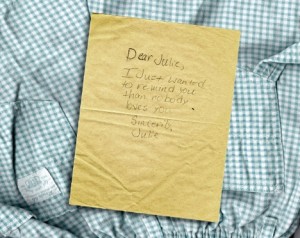 Dear Julie,
I Just wanted
to remind you
that nobody
loves you.
Sincerely,
Julie